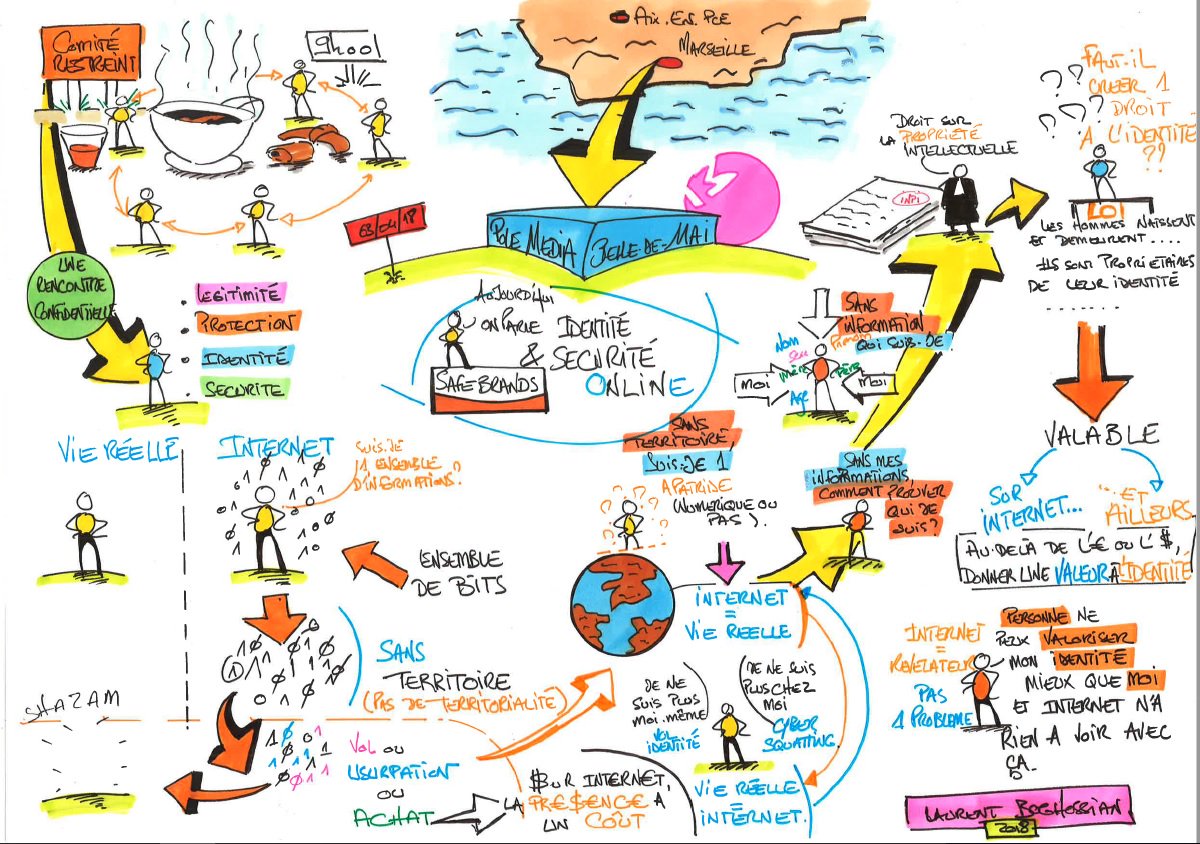 COMITÉ
RESTREINT
9h00
AIX.EN.PCE
MARSEILLE
UNE
RENCONTRE
CONFIDENTIELLE
LÉGITIMITÉ
PROTECTION
IDENTITÉ
SECURITE
03/04/18
POLE MEDIA
BELLE-DE-MAI
AUJOURD'HUI
ON PARLE IDENTITÉ
& SECURITÉ
ONLINE
SAFEBRANDS
DROIT SUR
LA PROPRIÉTÉ
INTELLECTUELLE
INPI
FAUT-IL
CRÉER 1
DROIT
A L'IDENTITÉ
??
LOI
LES HOMMES NAISSENT
ET DEMEURENT....
ILS SONT PROPRIETAIRES
DE LEUR IDENTITÉ
........
VALABLE
SUR
INTERNET...
... ET
AILLEURS
AU-DELÀ DE L'€ OU L'$,
DONNER UNE VALEUR À L'IDENTITÉ
SANS
INFORMATION
QUI SUIS-JE?
Nom
Prénom
Sexe
Mère
Père
Age
MOI
MOI
VIE RÉELLE
INTERNET
SUIS-JE
1 ENSEMBLE
D'INFORMATIONS?
ENSEMBLE
DE BITS
SANS
TERRITOIRE
(PAS DE-TERRITORIALITÉ)
SHAZAM
VOL OU
USURPATION
OU
ACHAT
$UR INTERNET,
LA PRE$ENCE A
UN COÛT
SANS
TERRITOIRE,
SUIS-JE 1
APATRIDE
(NUMERIQUE OU
PAS).
INTERNET
=
VIE REELLE
SANS MES
INFORMATIONS,
COMMENT PROUVER
QUI JE
SUIS?
JE NE
SUIS PLUS
MOI.MÊME
VOL
IDENTITÉ
JE NE SUIS
PLUS CHEZ
MOI
CYBER
SQUATTING.
VIE RÉELLE
=
INTERNET.
INTERNET
=
REVELATEUR
PAS
1 PROBLEME
PERSONNE NE
PEUX VALORISER
MON IDENTITÉ
MIEUX QUE MOI
ET INTERNET N'A
RIEN A VOIR AVEC
ÇA..
LAURENT BOGHOSSIAN
2018